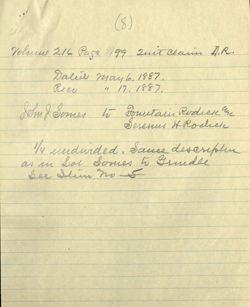 (8)
Volume 216 Page 499 Quit claim D.R.
Dated May 6. 1887.
Recd " 17. 1887.
John J. Somes to Fountain Rodick &c
Serenus H Rodick
1/4 undivided. Same description
as in Sol Somes to Grindle
See Item No 5